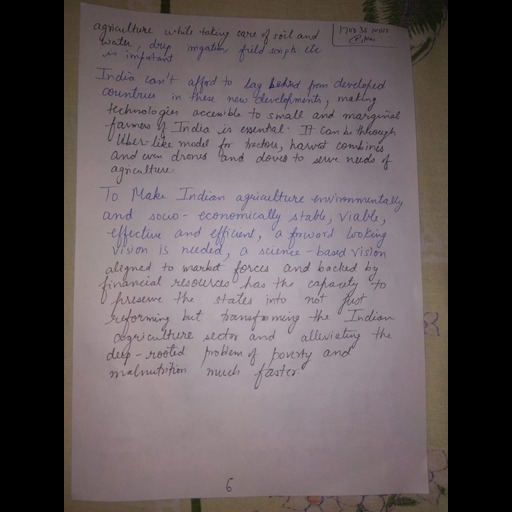 agriculture while taking care of soil and
water, drip irrigation field scripts etc
is important
India can't afford to lag behind from developed
countries in these new developments, making
technologies accessible to small and marginal
farmers of India is essential. It can be through
Uber-like model for tractors, harvest combines
and even drones and doves to serve needs of
agriculture.
To Make Indian agriculture environmentally
and socio-economically stable, viable,
effective and efficient, a forward looking
vision is needed, a science-based vision
aligned to market forces and backed by
financial resources has the capacity to
preserve the states into not just
reforming but transforming the Indian
agriculture sector and alleviating the
deep-rooted problem of poverty and
malnutrition much faster.
6